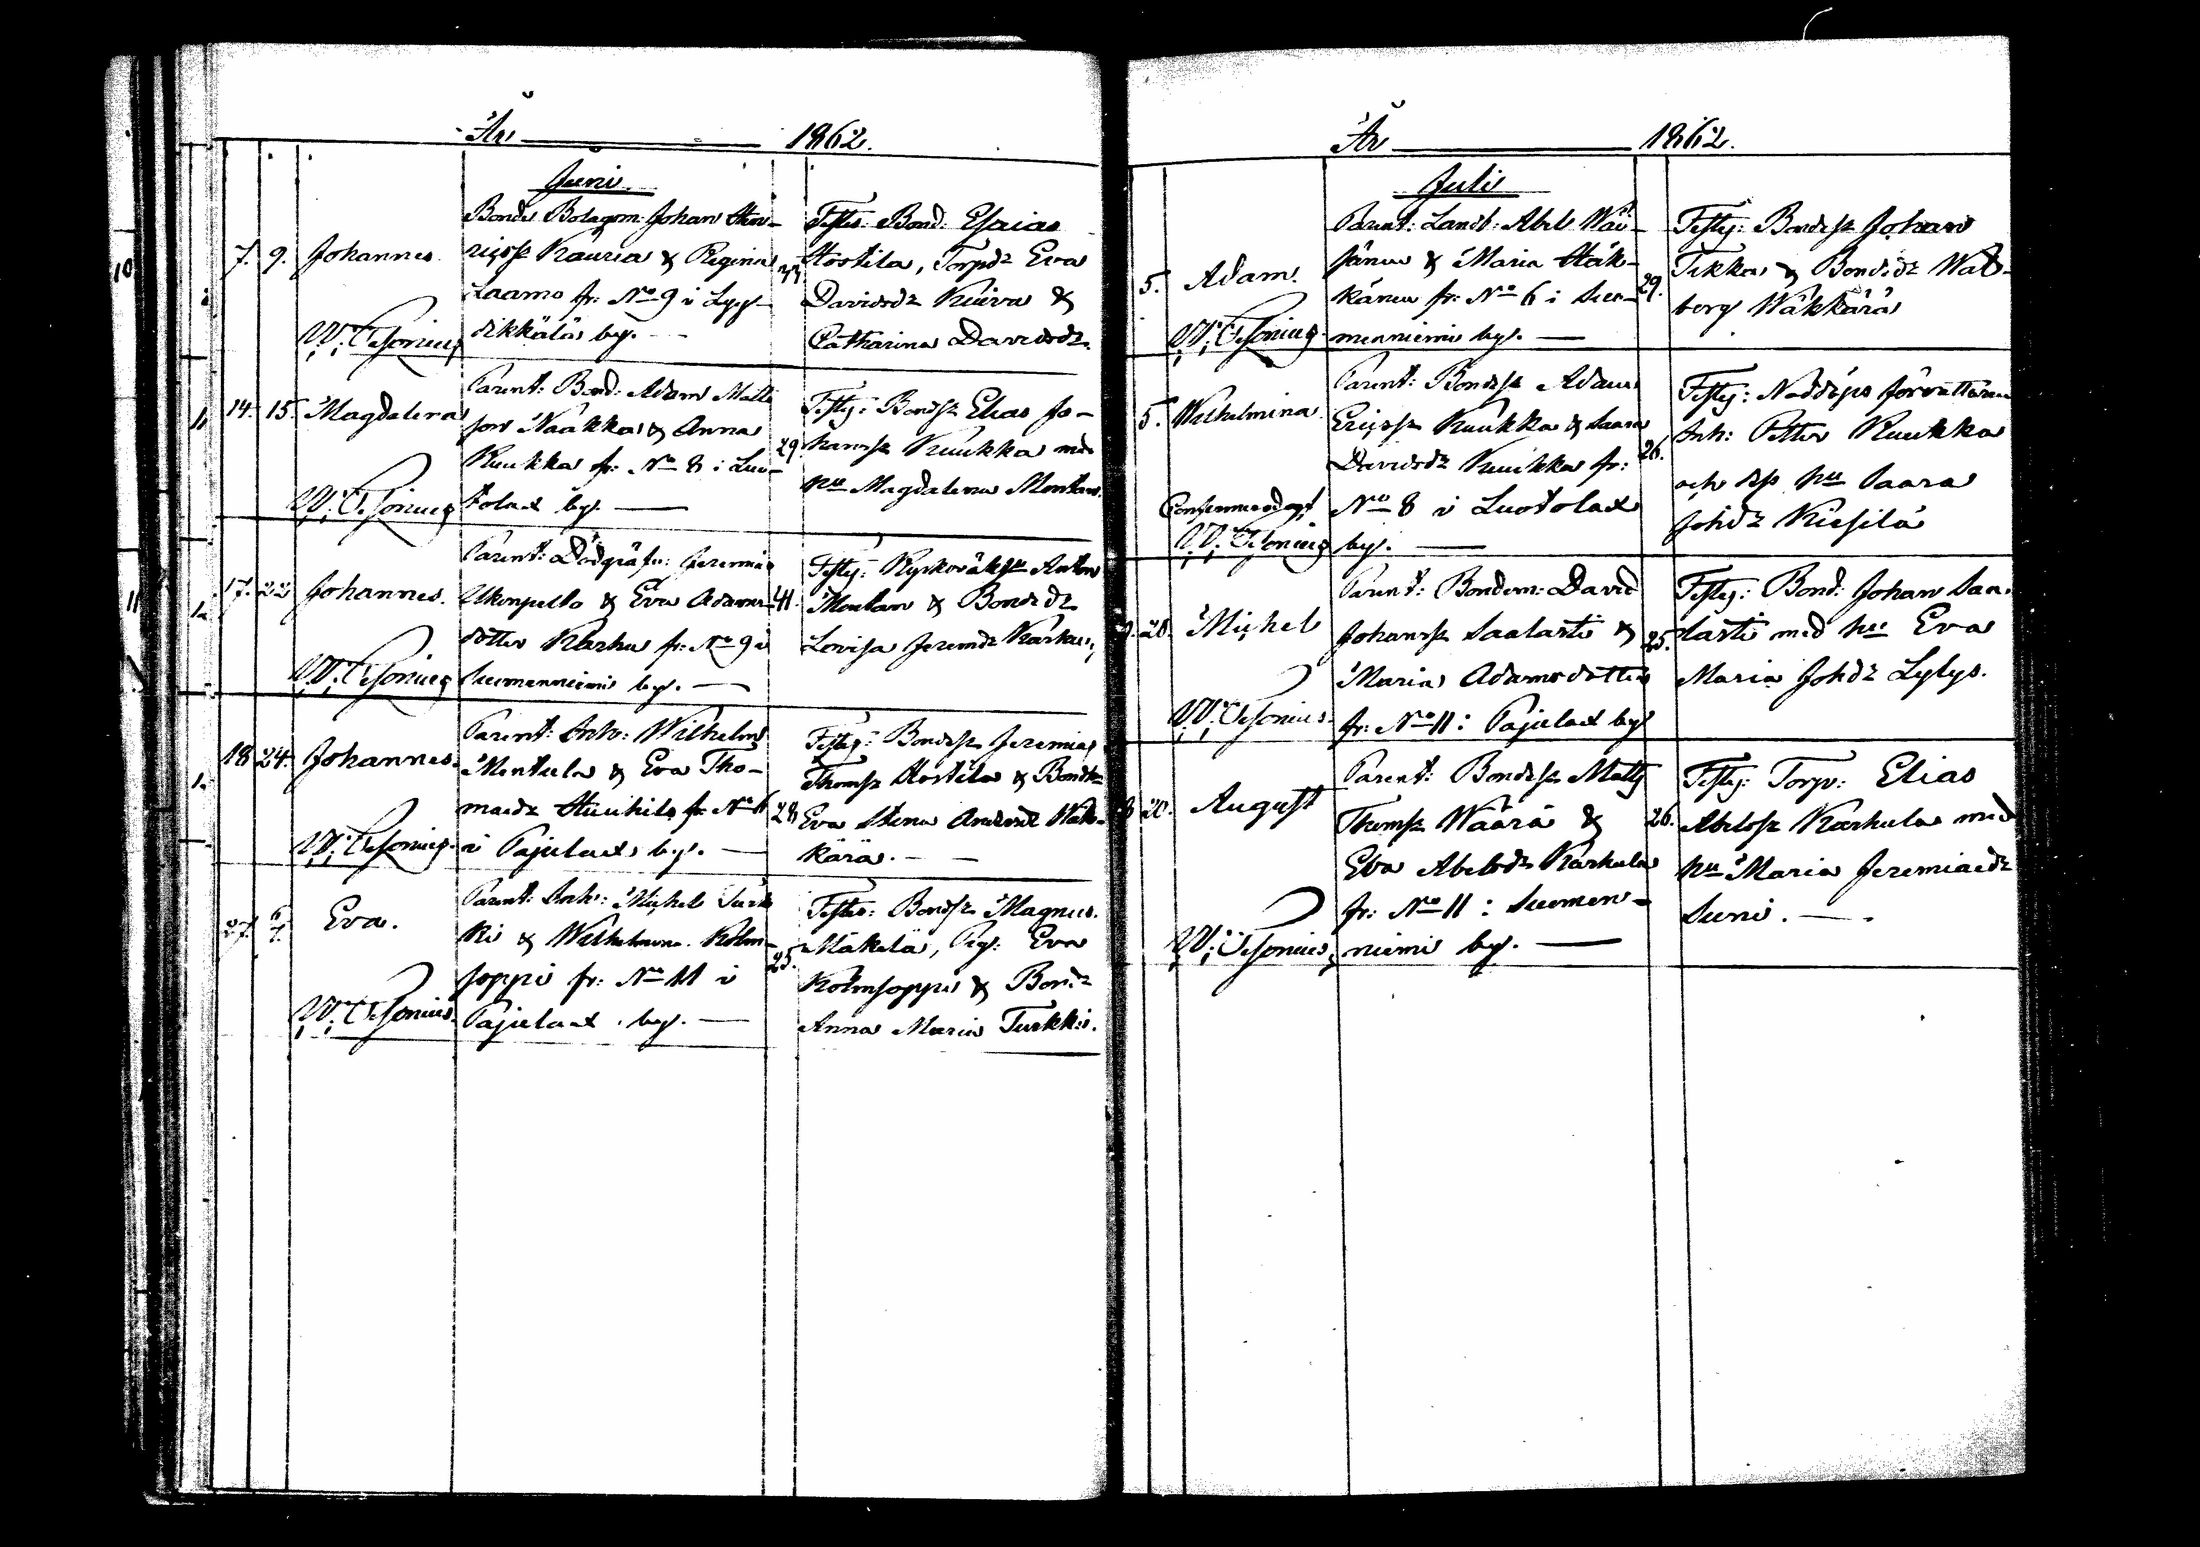 År 1862.
Juni.
7. 9. Johannes.
W. Cesonius
Bonde Bolagsm: Johan Hen-
ricss Kauria & Regina
Laamo fr: No 9 i Lyy-
dikkälä by.
33
Testes: Bond: Esaias
Hostila, Torpdr Eva
Davidsdr Kuiva &
Catharina Davidsdr.
14. 15. Magdalena
W. Cesonius
Parent: Bond: Adam Matts
son Naakka & Anna
Kuukka fr: No 8 i Luo-
tolax by.
29.
Testes: Bondss Elias Jo-
hanss Kuukka med
hu Magdalena Montan.
17. 22 Johannes.
W. Cesonius
Parent: Dödgräfv: Jeremias
Ukonpelto & Eva Adams-
dotter Karhu fr: No 9 i
Suomenniemi by.
41.
Testes: Kyrkoväkt Anton
Montan & Bondedr
Lovisa Jeremdr Karhu
18 24. Johannes.
W. Cesonius.
Parent: Inh: Wilhelm
Mentula & Eva Tho-
masdr Huuhilo fr: No 6
i Pajulax by.
28
Testes: Bondess Jeremias
Thomss Hostila & Bonddr
Eva Stina Andersdr Wäk-
kärä.
27. 6/7. Eva.
W. Cesonius.
Parent: Inh: Michel Turk
ki & Wilhelmina Kolm-
soppi fr: No 11 i
Pajulax by.
25.
Testes: Bondss Magnus
Mäkelä, Pig: Eva
Kolmsoppi & Bondr
Anna Maria Turkki.
År 1862.
Juli
5. Adam.
W. Cesonius.
Parent: Landb: Abel Wäi-
sänen & Maria Häk-
känen fr: No 6 i Suo-
menniemi by.
29.
Testes: Bondess Johan
Tikka & Bondedr Wal-
borg Wäkkärä
5. Wilhelmina.
W. Cesonius
Parent: Bondess Adam
Ericss Kuukka & Saara
Davidsdr Kuukka fr:
No 8 i Luotolax
by.
26.
Testes: Nöddops förrättaren
Inh: Petter Kuukka
och dess hu Saara
Johdr Kiesilä
20. Michel
W. Cesonius.
Parent: Bondem: David
Johanss Saalasti &
Maria Adamsdotter
fr: No 11 i Pajulax by
25.
Testes: Bond: Johan Saa-
lasti med hu Eva
Maria Johdr Lylys.
20. August
W. Cesonius,
Parent: Bondess Matts
Thomss Wäärä &
Eva Abelsdr Karhula
fr: No 11 i Suomen-
niemi by.
26.
Testes: Torp: Elias
Abelss Karhula med
hu Maria Jeremiaedr
Suni.
10
11